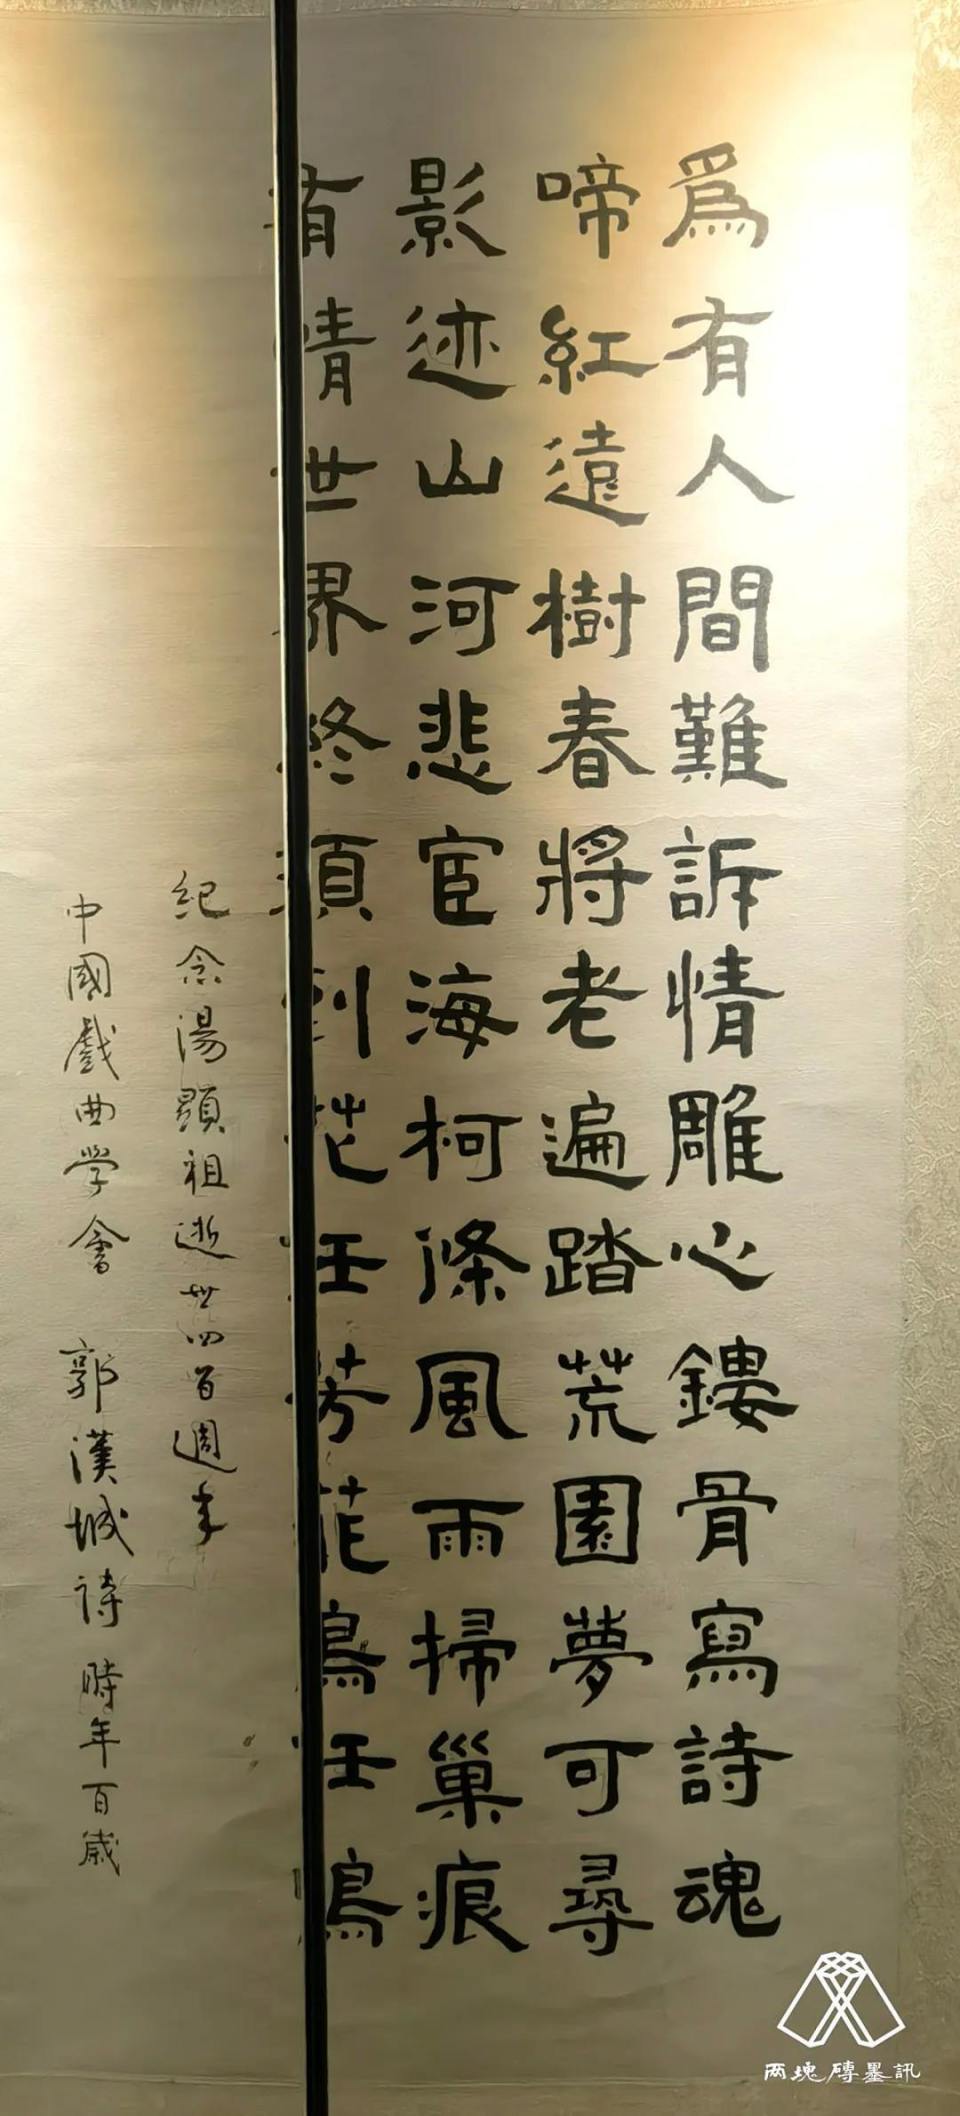 爲有人間難訴情雕心鏤骨寫詩魂
啼紅遠樹春將老遍踏荒園夢可尋
影迹山河悲宦海柯條風雨掃巢痕
有情世界終須到花任芳花鳥任鳴
紀念湯顯祖逝世四百週年
中國戲曲学會 郭漢城詩 時年百歲
两塊磚墨訊